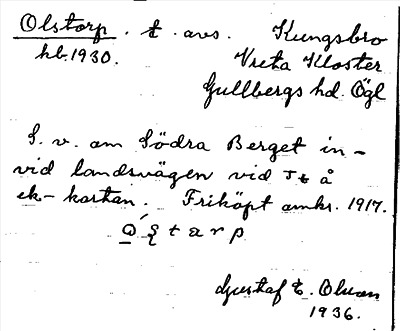 Olstorp. t. avs. Kungsbro
hb. 1930. Vreta Kloster
Gullbergs hd. Ögl
S. v. om Södra Berget in-
vid landsvägen vid Tb å
ek-kartan. Friköpt omkr. 1917.
Gustaf E. Olson
1936.